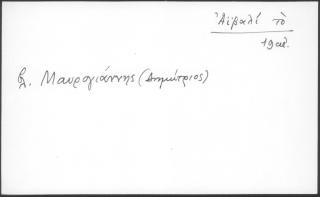 Ἀϊβαλὶ τὸ
19αι.
βλ. Μαυρογιάννης (Δημήτριος)